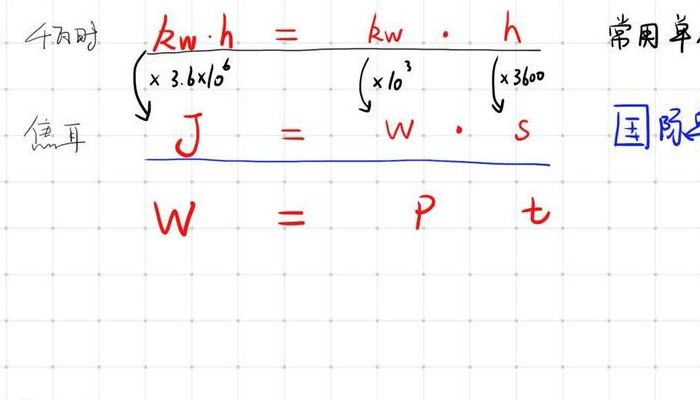 千瓦时 kw·h = kw · h 常用单
× 3.6×10⁶ ×10³ ×3600
焦耳 J = w · s 国际
W = P t